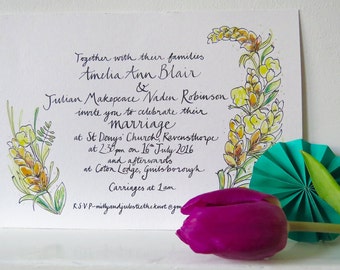 Together with their families
Amelia Ann Blair
&
Julian Makepeace Naden Robinson
invite you to celebrate their
marriage
at St Denys' Church, Ravensthorpe
at 2.30pm on 16th July 2016
and afterwards
at Coton Lodge, Guilsborough
Carriages at 1am
R.S.V.P -